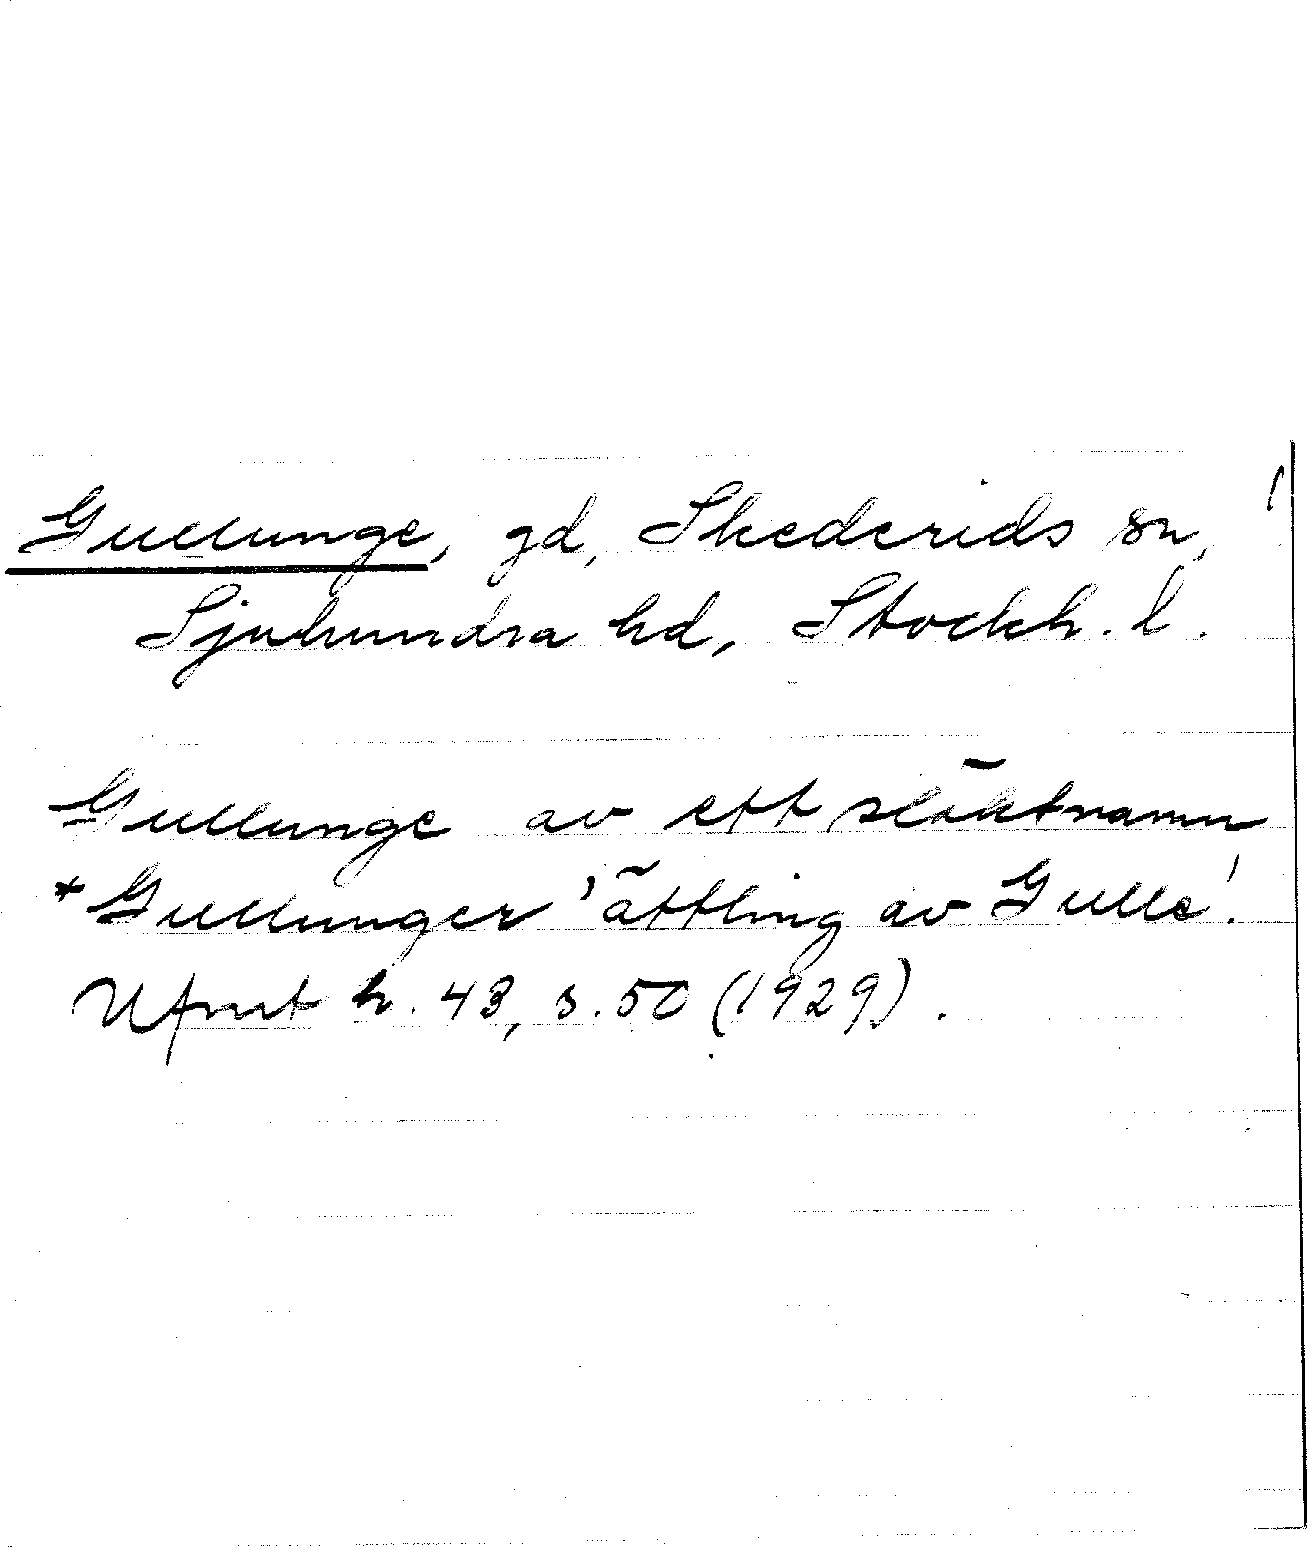 Gullunge, gd, Skederids sn,
Sjuhundra hd, Stockh. l.
Gullunge av ett släktnamn
*Gullunger 'ättling av Gulle'.
Ufmt h. 43, s. 50 (1929).